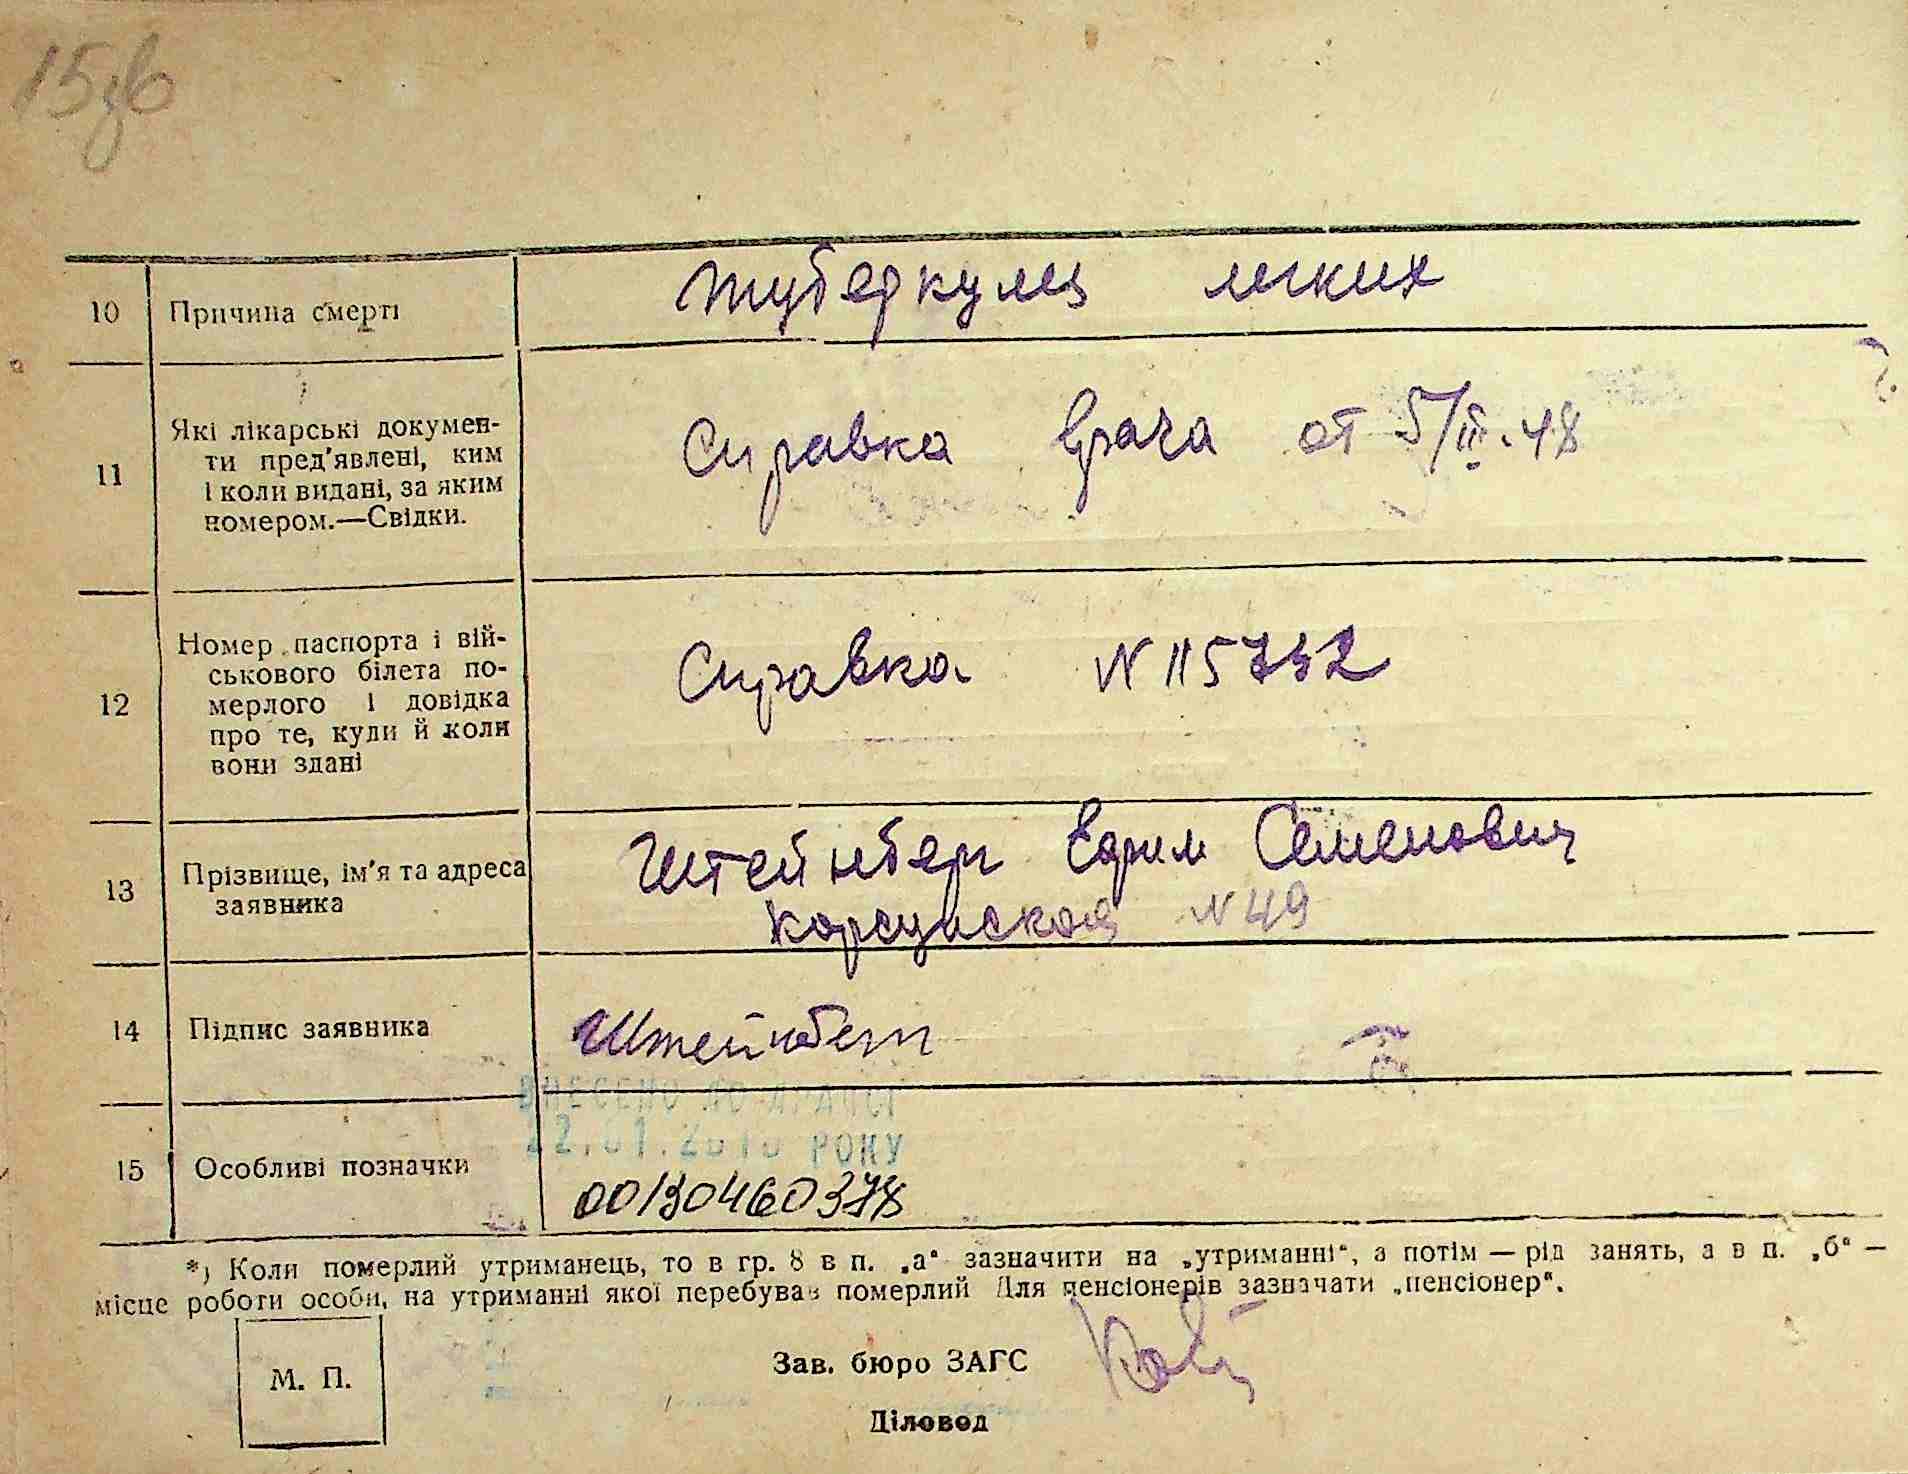 10 Причина смерті Туберкулез легких
11 Які лікарські докумен-
ти пред'явлені, ким
і коли видані, за яким
номером.—Свідки.
Справка врача от 5/III.48
12 Номер паспорта і вій-
ськового білета по-
мерлого і довідка
про те, куди й коли
вони здані
Справка N 115732
13 Прізвище, ім'я та адреса
заявника
Штейнберг Ефим Семенович
Корсунской N 49
14 Підпис заявника Штейнберг
ВНЕСЕНО ДО ДРАЦСГ
22.01.201 РОКУ
15 Особливі позначки
00130460378
*) Коли померлий утриманець, то в гр. 8 в п. „а“ зазначити на „утриманні“, а потім — рід занять, а в п. „б“ —
місце роботи особи, на утриманні якої перебував померлий Для пенсіонерів зазначати „пенсіонер“.
М. П.
Зав. бюро ЗАГС
Діловод